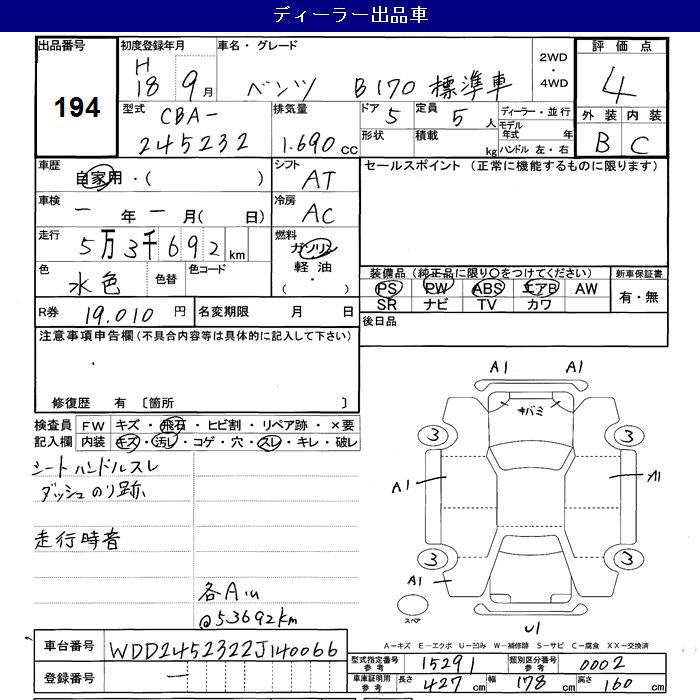 ディーラー出品車
出品番号
194
初度登録年月
H 18年 9月
車名・グレード
ベンツ B170 標準車
2WD
・
4WD
評価点
4
外装 内装
B C
型式
CBA-
245232
排気量
1.690 cc
ドア 5
定員 5 人
形状
積載 kg
ディーラー・並行
モデル
年式 年
ハンドル 左・右
車歴
自家用・( )
シフト
AT
車検
ー 年 ー 月( 日)
冷房
AC
走行
5万3千692 km
燃料
ガソリン
軽油
( ・ )
色
水色
色替
色コード
R券 19.010 円
名変期限 月 日
セールスポイント (正常に機能するものに限ります)
装備品 (純正品に限り○をつけてください)
PS PW ABS エアB AW
SR ナビ TV カワ
新車保証書
有・無
後日品
注意事項申告欄(不具合内容等は具体的に記入して下さい)
修復歴 有 〔箇所 〕
検査員
記入欄
FW キズ・飛石・ヒビ割・リペア跡・×要
内装 キズ・汚レ・コゲ・穴・スレ・キレ・破レ
シートハンドルスレ
ダッシュのり跡
走行時音
各A.u
@53692km
A1 A1
キバミ
3 3
A1 A1
3 3
A1
スペア
U1
A-キズ E-エクボ U-凹み W-補修跡 S-サビ C-腐食 XX-交換済
車台番号 WDD2452322J140066
登録番号 ー
型式指定番号
参考
15291
類別区分番号
参考
0002
車庫証明用
参考
長さ 427 cm 幅 178 cm 高さ 160 cm